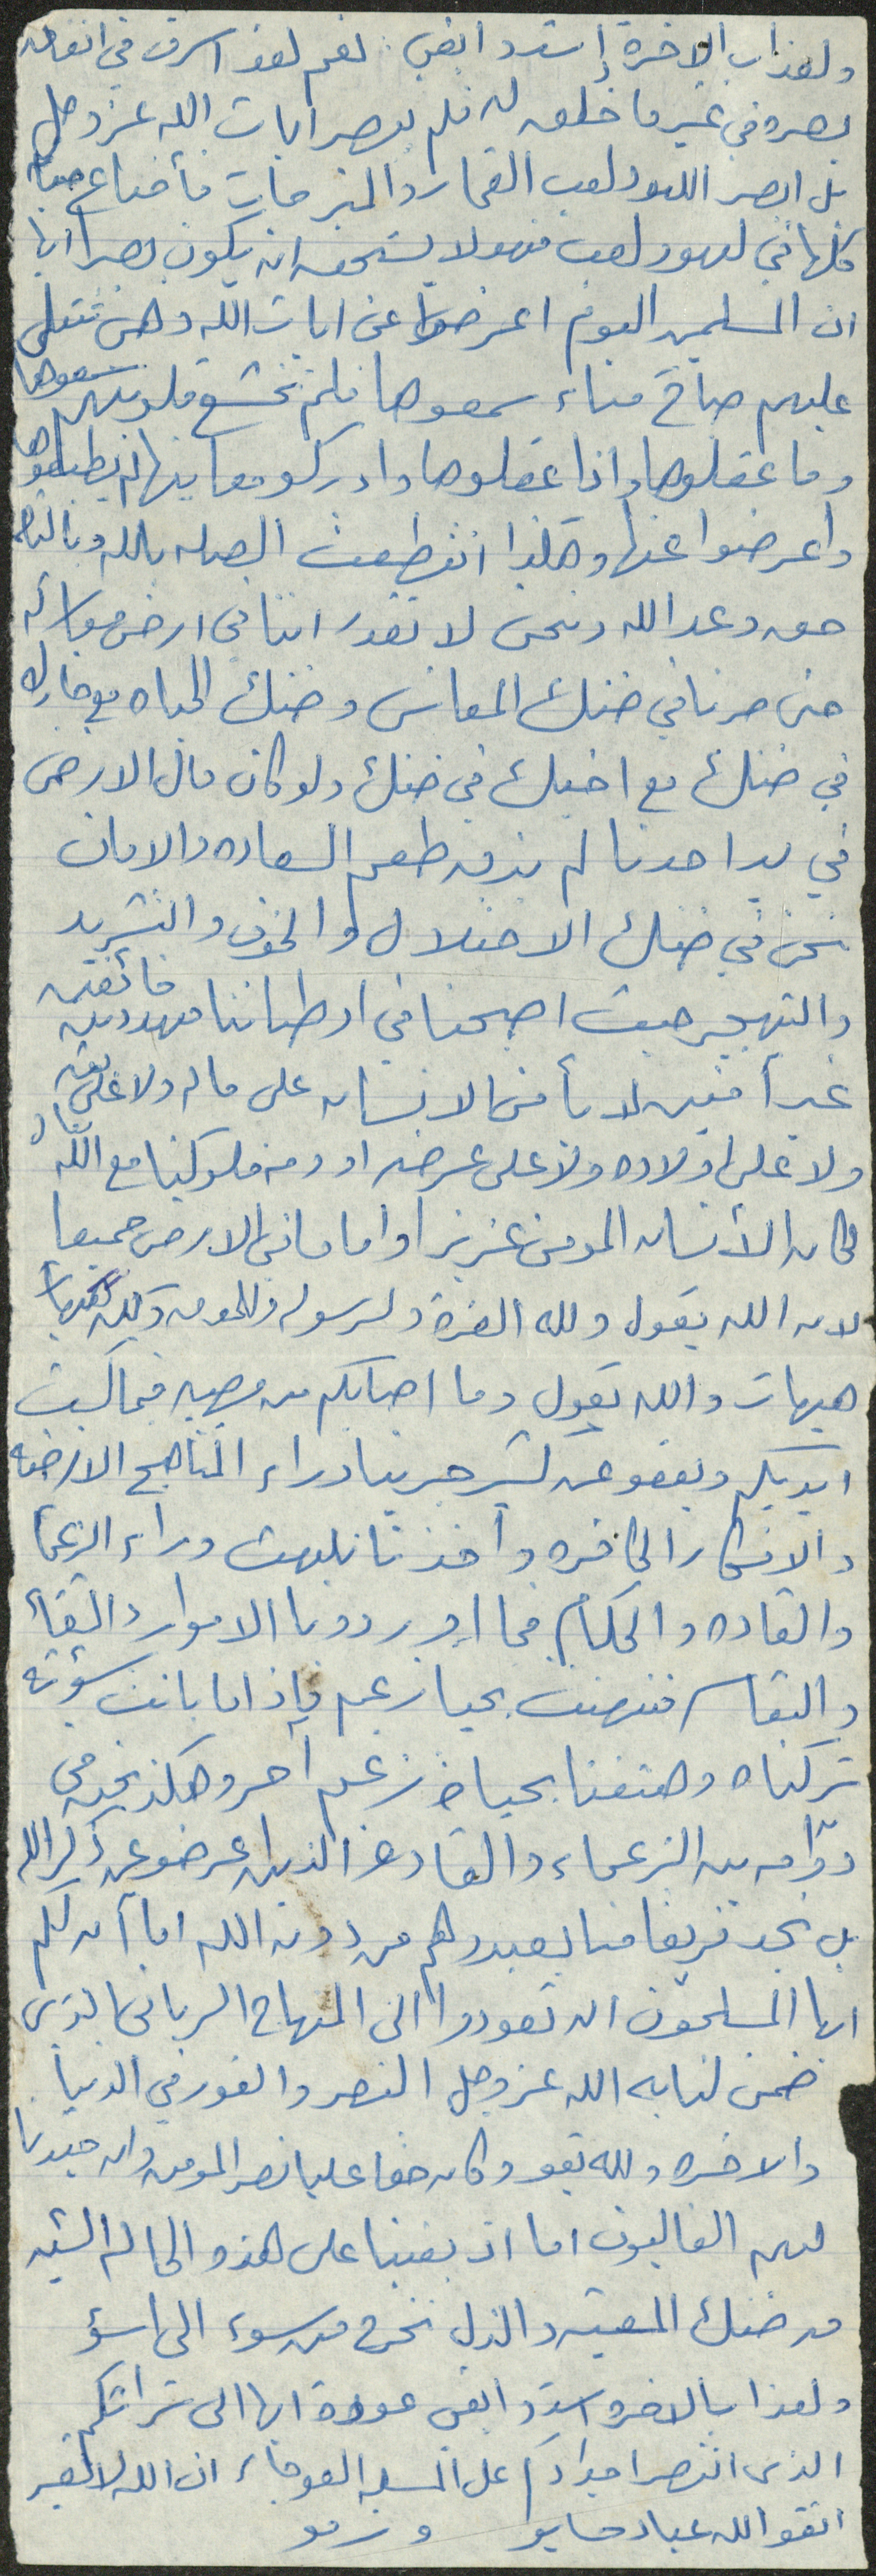 ولعذاب الاخرة اشد وابقى نعم لقد اسرف في انفاق
بصره في غير ما خلق له فلم يبصر ايات الله عز وجل
بل ابصر اللهو ولعب القمار والمنزهات فأضاع حياته
كلها في لهو ولعب فهو لا يستحق ان يكون بصيرا
ان المسلمين اليوم اعرضوا عن ايات الله وهي تتلى
عليهم صباح مساء سمعوها فلم تخشع قلوبهم سمعوها
وما عقلوها واذا عقلوها وادركو معانيها لم يطبقوها
واعرضوا عنها وهكذا انقطعت الصلة بالله وبالتالي
حق وعد الله ونحن لا نقدر اننا في ارض مباركة
حتى صرنا في ضنك المعاش وضنك الحياه مع جارك
في ضنك مع اخيك في ضنك ولو كان مال الارض
في يد احدنا لم يذق طعم السعاده والامان
نحن في ضنك الاحتلال والخوف والتشريد
والتهجير حيث اصبحنا في اوطاننا مهددين خائفين
غير آمنين لا يأمن الانسان على ماله ولا على بيته
ولا على اولاده ولا على عرضه او دمه فلو كنا مع الله
لكان الأنسان المومن عزيزا امام ما في الارض جميعا
لان الله يقول ولله العزة ولرسوله وللمومنين ولكن هيهات
هيهات والله يقول وما اصابكم من مصيبه فبما كسبت
ايديكم ويعفو عن كثير جرينا وراء المناهج الارضيه
والافكار الكافره وأخذنا نلهث وراء الزعما
والقاده والحكام فما اوردونا الا موارد الشقاء
والتعاسه فنهتف بحياة زعيم فإذا ما بانت سوئته
تركناه وهتفنا بحياة زعيم آخر وهكذا نحن في
دوامه بين الزعماء والقادة الذين اعرضو عن ذكر الله
بل نجد فريقا منا يعبدوهم من دون الله اما آن لكم
ايها المسلمون ان تعودوا الى المنهاج الرباني الذي
ضمن لنا به الله عز وجل النصر والفوز في الدنيا
والاخره والله يقو وكان حقا علينا نصر المومنين وان جندنا
لهم الغالبون اما ان بقينا على هذه الحاله السيئه
من ضنك المعيشه والذل نخرج من سوء الى اسوء
ولعذاب الاخره اشد وابقى عودة ايها الى تراثكم
الذي انتصر اجدادكم على ان الله لا يغير
اتقو الله عباد